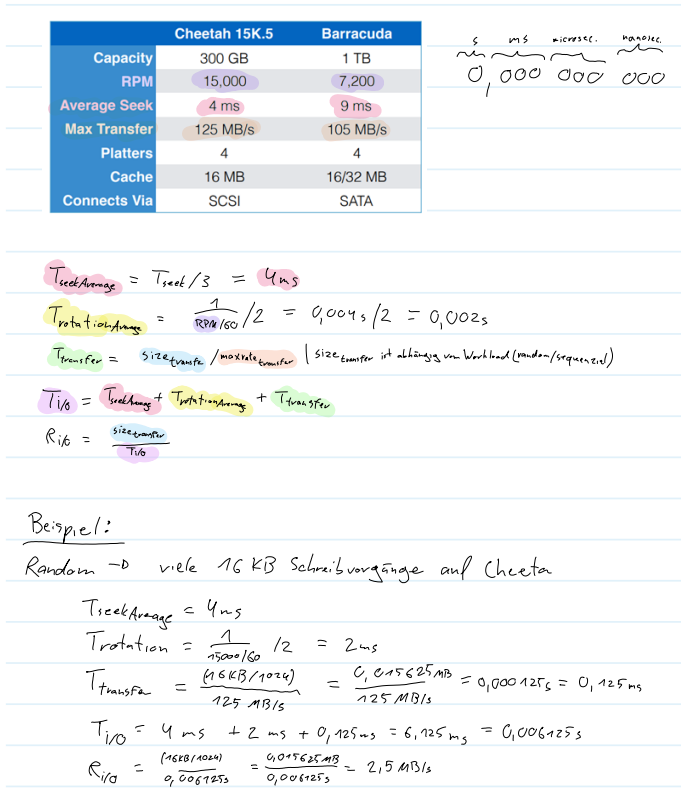 Cheetah 15K.5 Barracuda
Capacity 300 GB 1 TB
RPM 15,000 7,200
Average Seek 4 ms 9 ms
Max Transfer 125 MB/s 105 MB/s
Platters 4 4
Cache 16 MB 16/32 MB
Connects Via SCSI SATA
s ms microsec. nanosec.
0,000 000 000
TseekAverage = Tseek/3 = 4ms
TrotationAverage = 1/(RPM/60) /2 = 0,004s/2 = 0,002s
Ttransfer = sizetransfer/maxratetransfer | sizetransfer ist abhängig vom Workload (random/sequenziel)
Ti/o = TseekAverage + TrotationAverage + Ttransfer
Ri/o = sizetransfer/Ti/o
Beispiel:
Random → viele 16 KB Schreibvorgänge auf Cheeta
TseekAverage = 4ms
Trotation = 1/(15000/60) /2 = 2ms
Ttransfer = (16KB/1024)/125 MB/s = 0,015625MB/125 MB/s = 0,000125s = 0,125ms
Ti/o = 4 ms + 2 ms + 0,125ms = 6,125ms = 0,006125s
Ri/o = (16KB/1024)/0,006125s = 0,015625MB/0,006125s = 2,5 MB/s